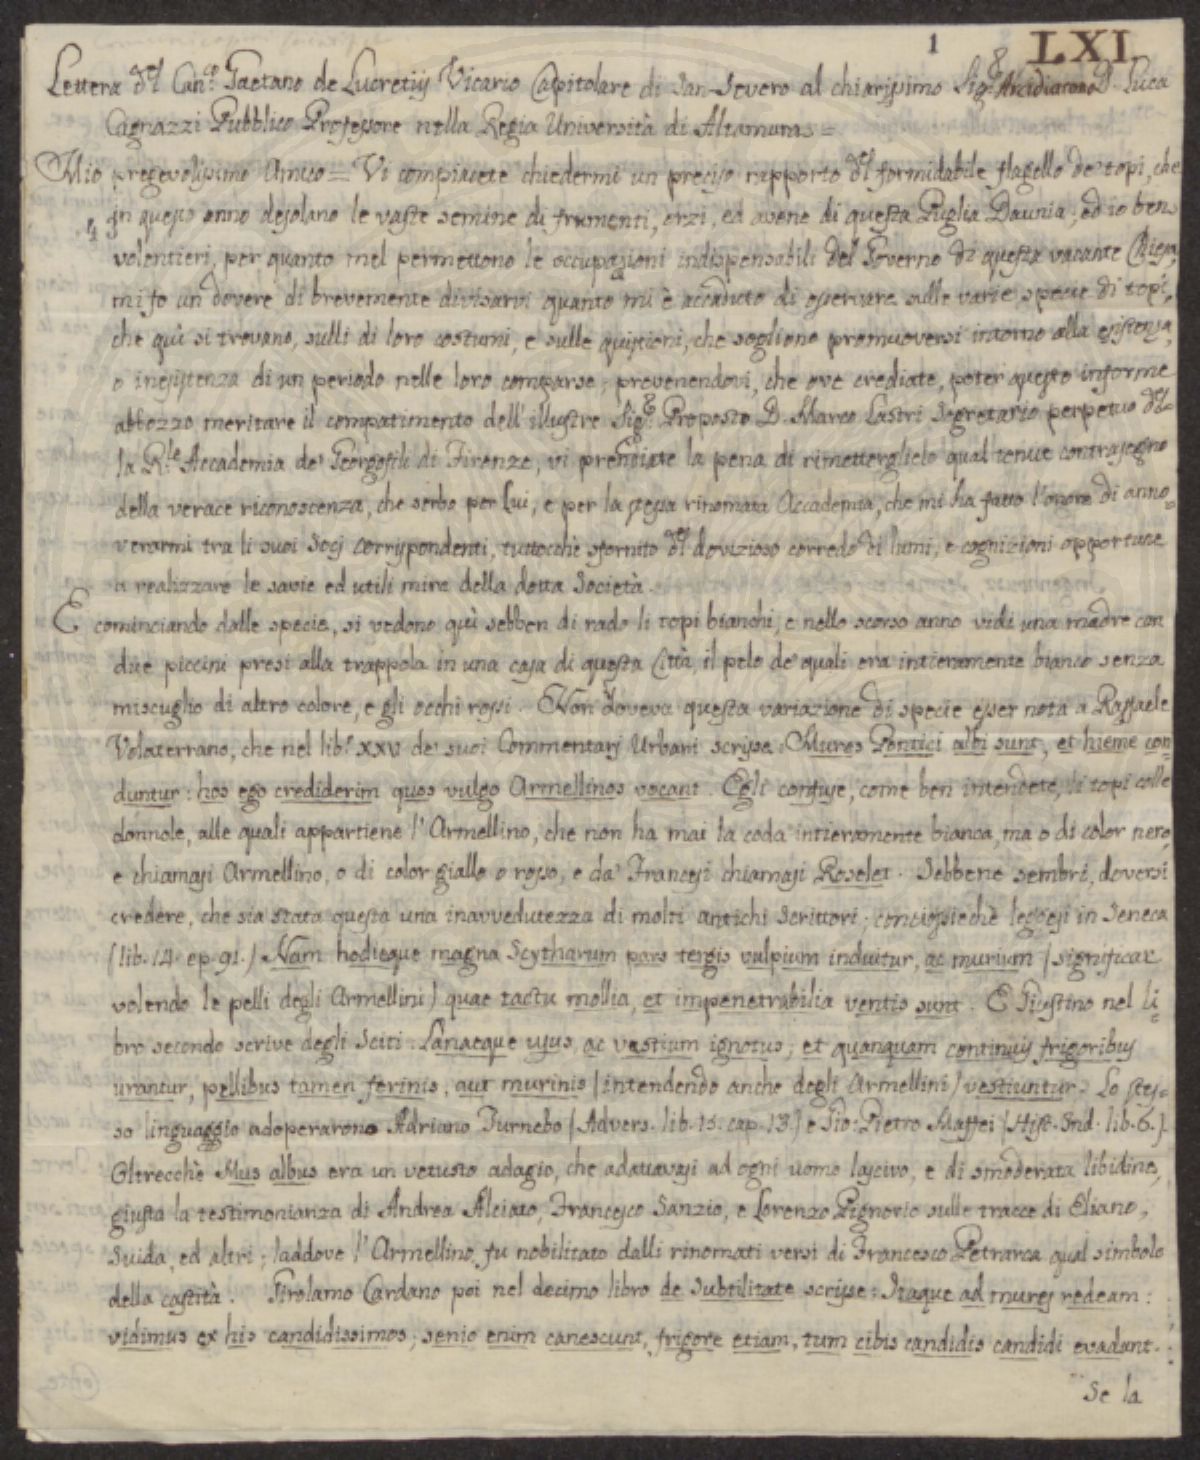 1 8 LXI
Lettera del Can.co Gaetano de Lucretiis Vicario Capitolare di San-Severo al chiarissimo Sig.r Arcidiacono D. Luca
Cagnazzi Pubblico Professore nella Regia Università di Altamura=
Mio pregevolissimo Amico= Vi compiacete chiedermi un preciso rapporto del formidabile flagello de' topi, che
in questo anno desolano le vaste semine di frumenti, orzi, ed avene di questa Puglia Daunia; ed io ben
volentieri, per quanto mel permettono le occupazioni indispensabili del Governo di questa vacante Chiesa,
mi fo un dovere di brevemente divisarvi quanto mi è accaduto di osservare sulle varie specie di topi,
che quì si trovano, sulli di loro costumi, e sulle quistioni, che sogliono promuoversi intorno alla esistenza,
o inesistenza di un periodo nelle loro comparse; prevenendovi, che ove crediate, poter questo informe
abbozzo meritare il compatimento dell'illustre Sig.r Proposto D. Marco Lastri Segretario perpetuo del-
la R.le Accademia de' Georgofili di Firenze, vi prendiate la pena di rimetterglielo qual tenue contrasegno
della verace riconoscenza, che serbo per Lui, e per la stessa rinomata Accademia, che mi ha fatto l'onore di anno=
verarmi tra li suoi Socj corrispondenti, tuttocchè sfornito del dovizioso corredo di lumi, e cognizioni opportune
a realizzare le savie ed utili mire della dotta Società.
E cominciando dalle specie, si vedono quì sebben di rado li topi bianchi, e nello scorso anno vidi una madre con
due piccini presi alla trappola in una casa di questa Città, il pelo de' quali era intieramente bianco senza
miscuglio di altro colore, e gli occhi rossi. Non doveva questa variazione di specie esser nota a Raffaele
Volaterrano, che nel lib.o XXVI de' suoi Commentarj Urbani scrisse: Mures Pontici albi sunt, et hieme con=
duntur: hos ego crediderim quos vulgo Armellinos vocant. Egli confuse, come ben intendete, li topi colle
donnole, alle quali appartiene l'Armellino, che non ha mai la coda intieramente bianca, ma o di color nero,
e chiamasi Armellino, o di color giallo o rosso, e da' Francesi chiamasi Roselet. Sebbene sembri, doversi
credere, che sia stata questa una inavvedutezza di molti antichi Scrittori; conciossiechè leggesi in Seneca
(lib. 14. ep. 91.) Nam hodieque magna Scytharum pars tergis vulpium induitur, ac murium (significar
volendo le pelli degli Armellini) quae tactu mollia, et impenetrabilia ventis sunt. E Giustino nel li=
bro secondo scrive degli Sciti: Lanaeque usus, ac vestium ignotus; et quanquam continuis frigoribus
urantur, pellibus tamen ferinis, aut murinis (intendendo anche degli Armellini) vestiuntur. Lo stes=
so linguaggio adoperarono Adriano Turnebo (Advers. lib. 15. cap. 13.) e Gio: Pietro Maffei (Hist. Ind. lib. 6.).
Oltrecchè Mus albus era un vetusto adagio, che adattavasi ad ogni uomo lascivo, e di smoderata libidine,
giusta la testimonianza di Andrea Alciato, Francesco Sanzio, e Lorenzo Pignorio sulle tracce di Eliano,
Suida, ed altri; laddove l'Armellino fu nobilitato dalli rinomati versi di Francesco Petrarca qual simbolo
della castità. Girolamo Cardano poi nel decimo libro de Subtilitate scrisse: Itaque ad mures redeam:
vidimus ex his candidissimos; senio enim canescunt, frigore etiam, tum cibis candidis candidi evadunt.
Se la